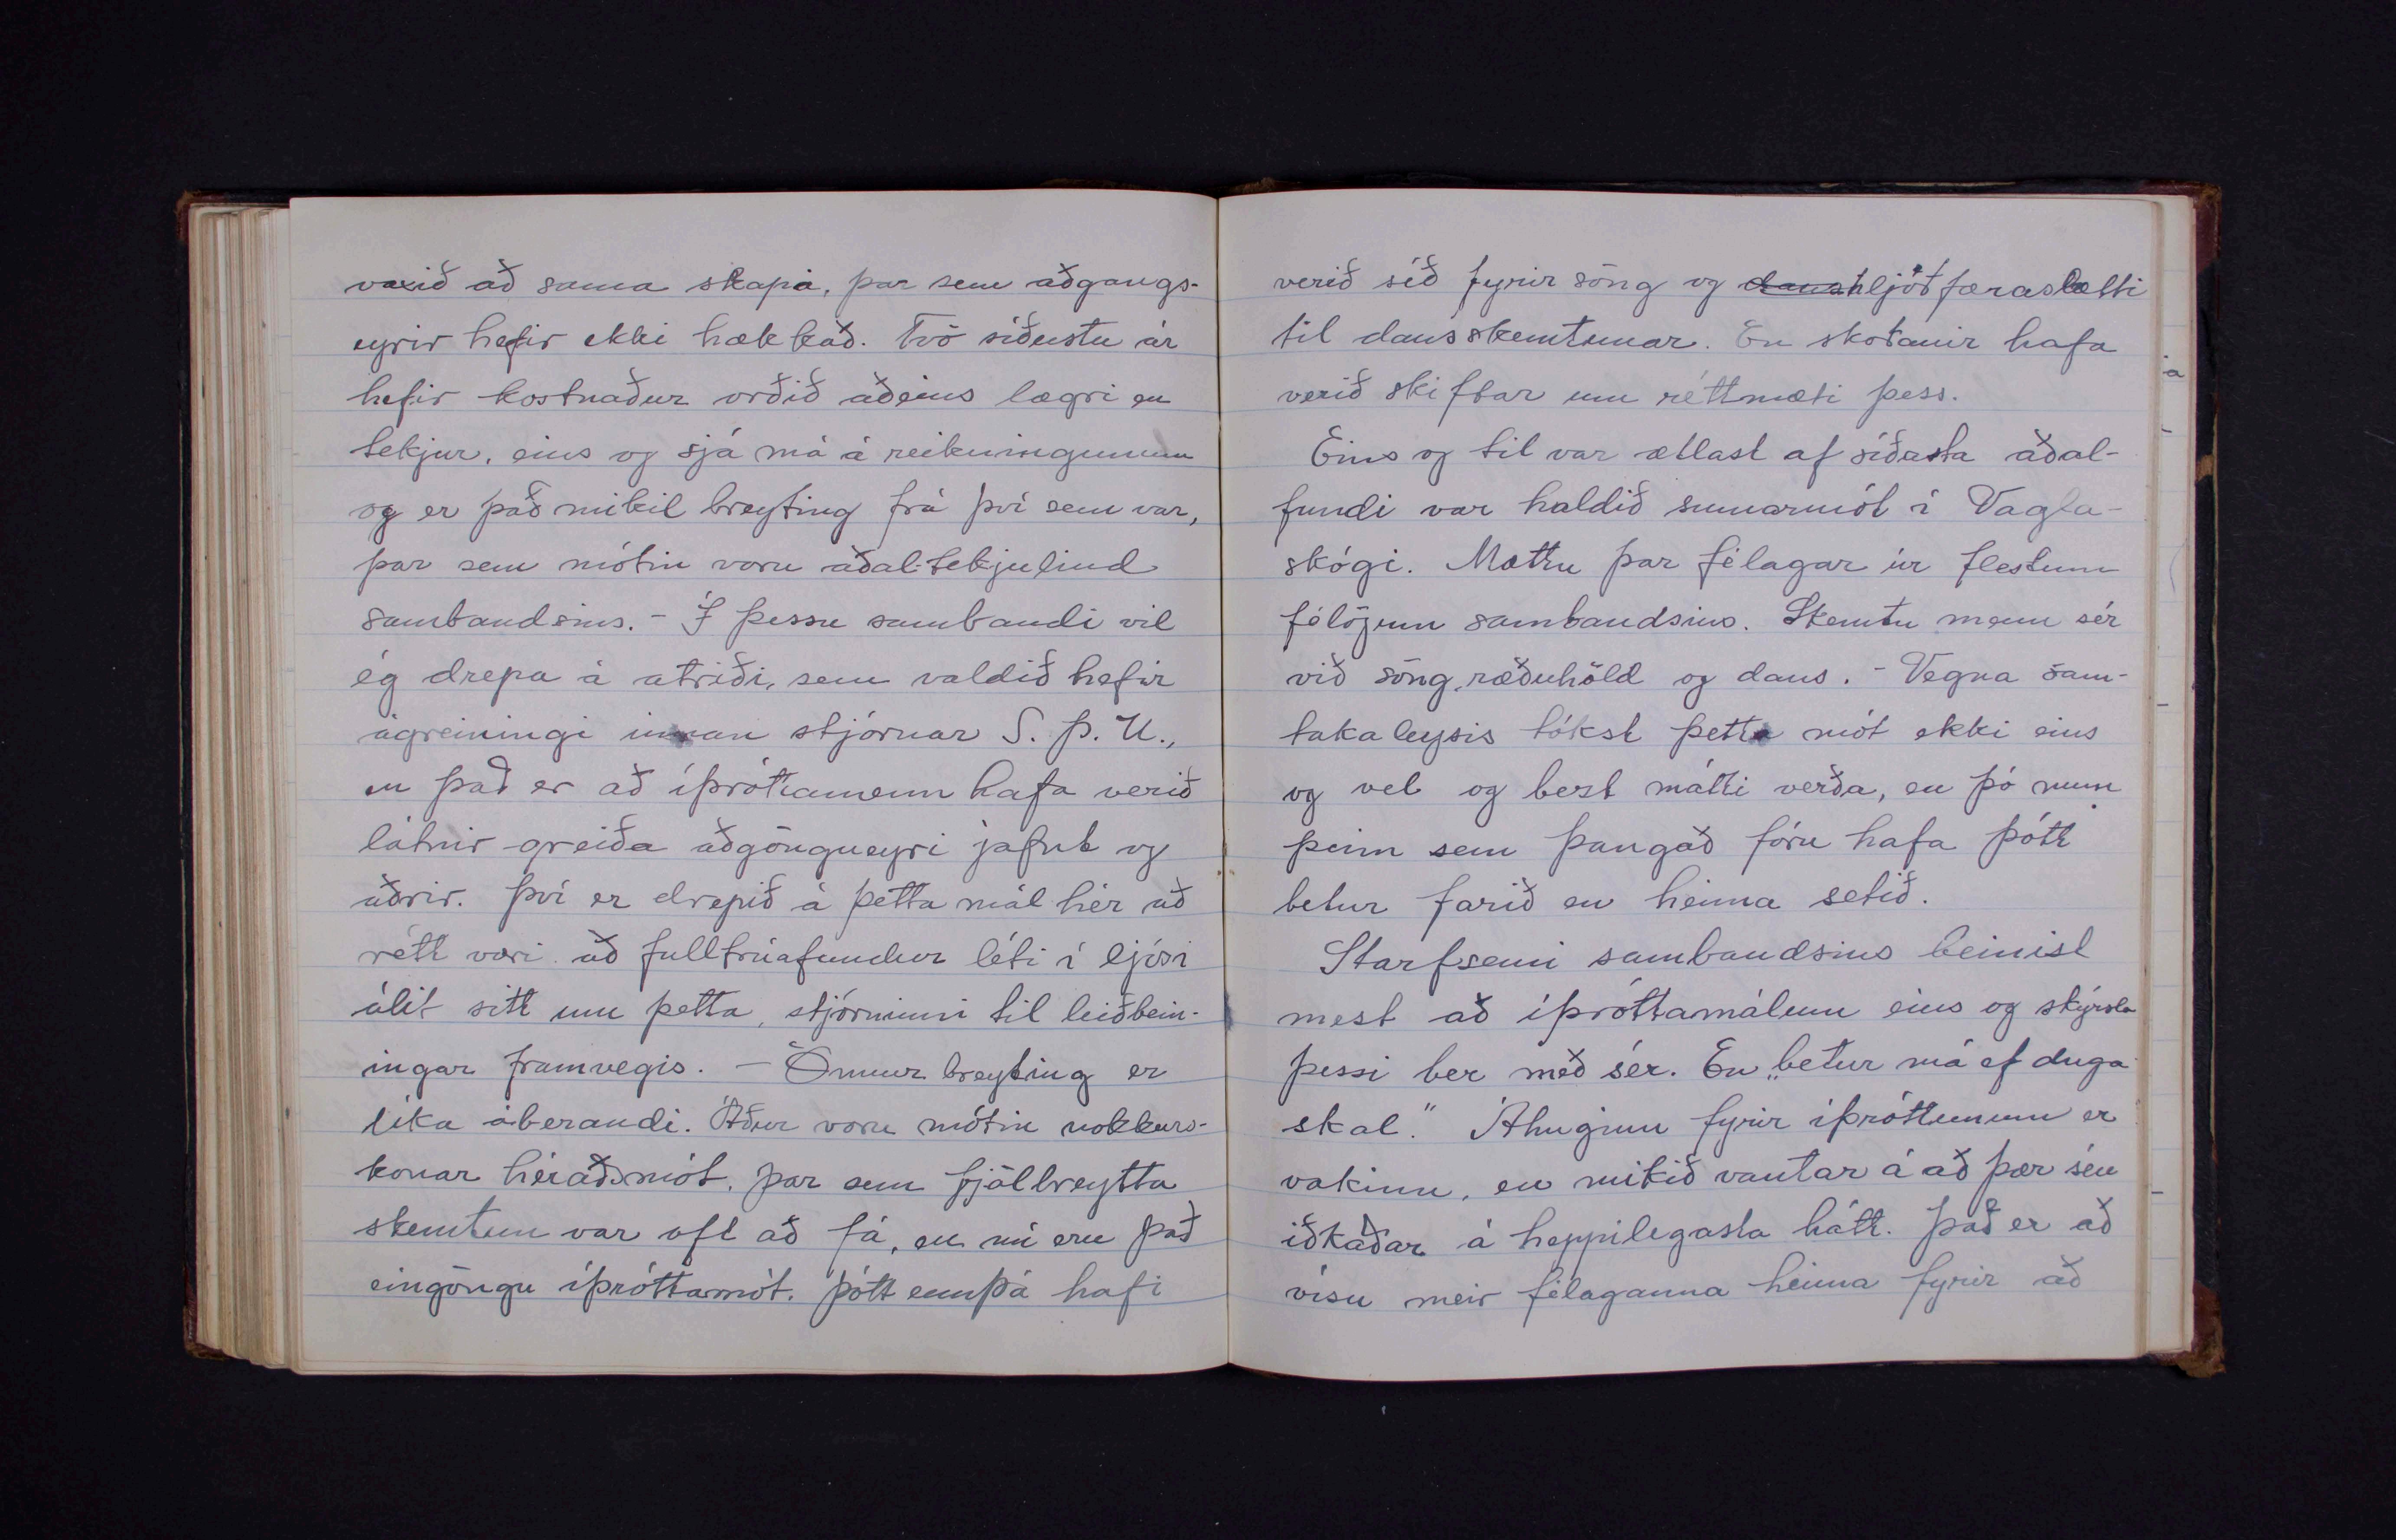 vaxið að sama skapi, þar sem aðgangs-
eyrir hefir ekki hækkað. Tvö síðustu ár
hefir kostnaður orðið aðeins lægri en
tekjur, eins og sjá má á reikningunum
og er það mikil breyting frá því sem var,
þar sem mótin voru aðal-tekjulind
sambandsins. - Í þessu sambandi vil
ég drepa á atriði, sem valdið hefir
ágreiningi innan stjórnar S. Þ. U.,
en það er að íþróttamenn hafa verið
látnir greiða aðgöngueyri jafnt og
aðrir. Því er drepið á þetta mál hér að
rétt væri að fulltrúafundur léti í ljósi
álit sitt um þetta, stjórninni til leiðbein-
ingar framvegis. - Önnur breyting er
líka áberandi. Áður voru mótin nokkurs-
konar héraðsmót, þar sem fjölbreytta
skemtun var oft að fá, en nú eru það
eingöngu íþróttamót. Þótt ennþá hafi
verið séð fyrir söng og dans hljóðfæraslætti
til dansskemtunar. En skoðanir hafa
verið skiftar um réttmæti þess.
Eins og til var ætlast af síðasta aðal-
fundi var haldið sumarmót í Vagla-
skógi. Mættu þar félagar úr flestum
félögum sambandsins. Skemtu menn sér
við söng, ræðuhöld og dans. - Vegna sam-
takaleysis tókst þetta mót ekki eins
og vel og bezt mátti verða, en þó mun
þeim sem þangað fóru hafa þótt
betur farið en heima setið.
Starfsemi sambandsins beinist
mest að íþróttamálum eins og skýrsla
þessi ber með sér. En „betur má ef duga
skal." Áhuginn fyrir íþróttunum er
vakinn, en mikið vantar á að þær séu
iðkaðar á heppilegasta hátt. Það er að
vísu meir félaganna heima fyrir að